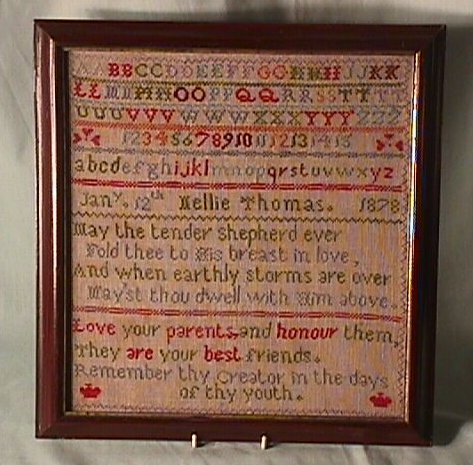 A A B B C C D D E E F F G G H H I I J J K K
L L M M N N O O P P Q Q R R S S T T
U U U V V V W W W X X X Y Y Y Z Z Z
1 2 3 4 5 6 7 8 9 10 11 12 13 14 15
a b c d e f g h i j k l m n o p q r s t u v w x y z
Jany. 12th Nellie Thomas. 1878
May the tender shepherd ever
Fold thee to His breast in love,
And when earthly storms are over
May'st thou dwell with Him above.
Love your parents, and honour them,
They are your best friends.
Remember thy Creator in the days
of thy youth.